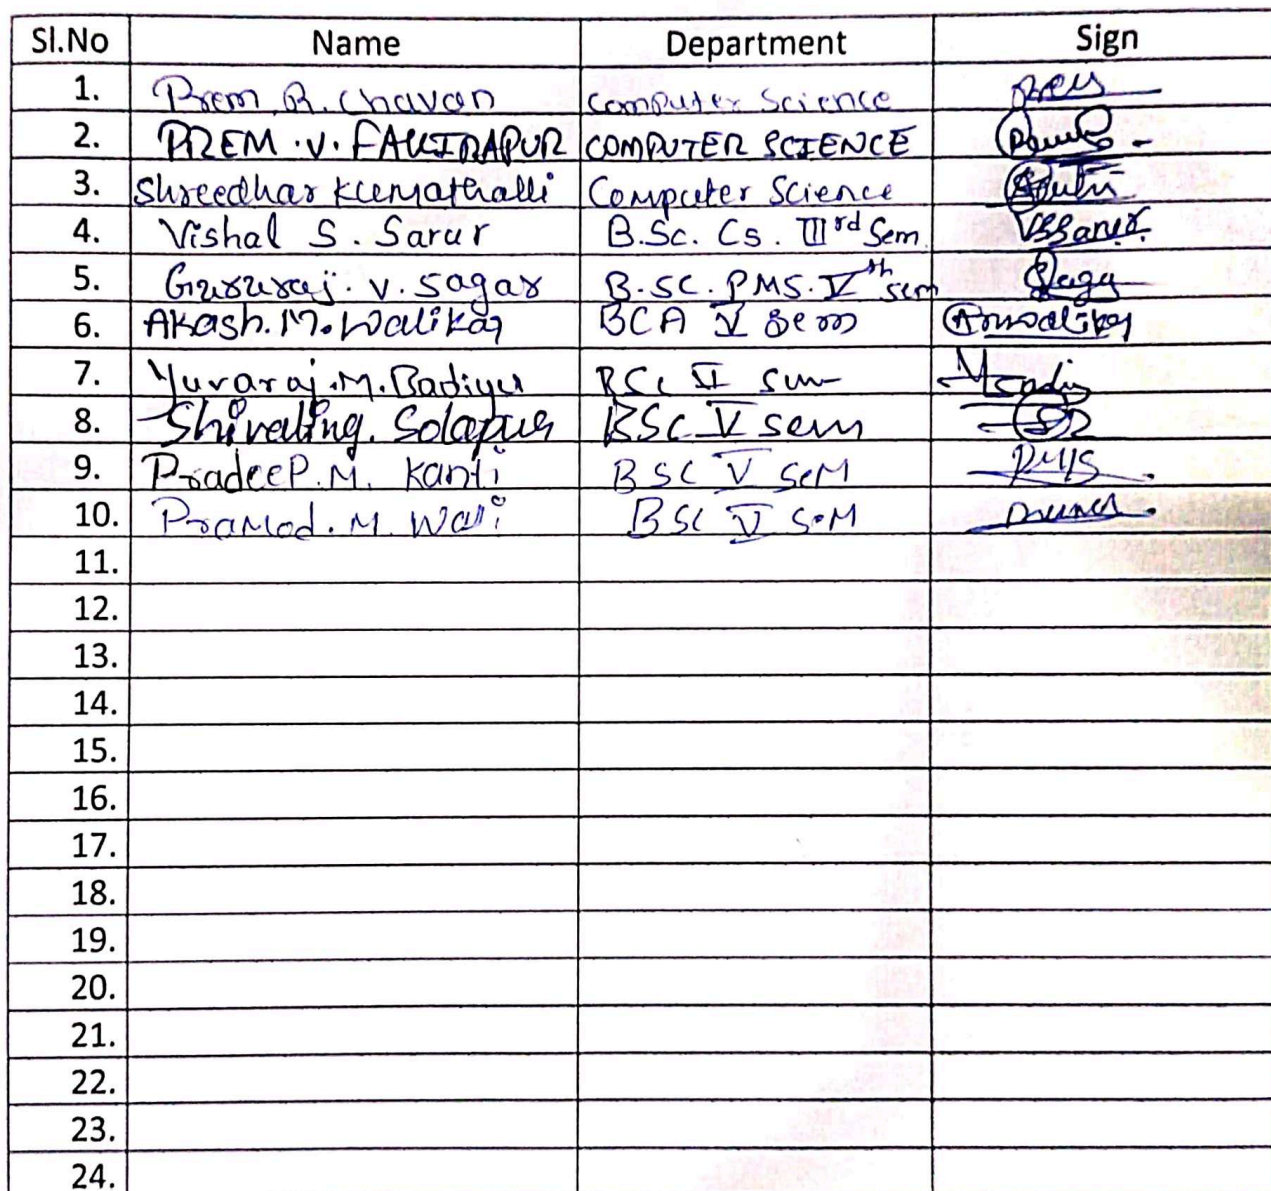 Sl.No Name Department Sign
1. Prem R. Chavan Computer Science
2. PREM .V. FAKIRAPUR COMPUTER SCIENCE
3. Shreedhar Kumathalli Computer Science
4. Vishal S. Sarur B.Sc. Cs. IIIrd Sem. VSSarur.
5. Gururaj. V. Sagar B.SC. PMS. Vth sem
6. Akash.M.Walikar BCA V Sem Amwalikar
7. Yuvaraj.M.Badiger BSc V Sem
8. Shivaling. Solapur BSC V sem
9. PradeeP.M. Kanti BSC V SeM
10. PraMod.M. Wali BSC V SeM
11.
12.
13.
14.
15.
16.
17.
18.
19.
20.
21.
22.
23.
24.